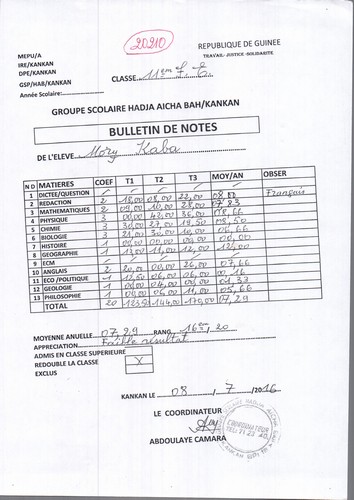 20210
MEPU/A
IRE/KANKAN
DPE/KANKAN
GSP/HAB/KANKAN
Année Scolaire:
REPUBLIQUE DE GUINEE
TRAVAIL- JUSTICE -SOLIDARITE
CLASSE 11em
GROUPE SCOLAIRE HADJA AICHA BAH/KANKAN
BULLETIN DE NOTES
DE L'ELEVE Mory Kaba
N D MATIERES COEF T1 T2 T3 MOY/AN OBSER
1 DICTEE/QUESTION Français
2 REDACTION 2 18,00 08,00 22,00 08,00
3 MATHEMATIQUES 2 09,00 10,00 28,00 07,83
4 PHYSIQUE 3 00,00 42,00 36,00 08,66
5 CHIMIE 3 30,00 27,00 19,50 08,50
6 BIOLOGIE 3 21,00 30,00 06,66
7 HISTOIRE 1 00,00 00,00 00,00 00,00
8 GEOGRAPHIE 1 13,00 11,00 12,00 12,00
9 ECM
10 ANGLAIS 2 20,00 00,00 26,00 07,66
11 ECO /POLITIQUE 1 06,00 06,00
12 GEOLOGIE 1 00,00 04,00 00,00 01,33
13 PHILOSOPHIE 1 00,00 06,00 11,00 05,66
TOTAL 20 123,50 144,00 170,00 07,29
MOYENNE ANUELLE 07,29 RANG 16em/20
APPRECIATION Faible résultat
ADMIS EN CLASSE SUPERIEURE
REDOUBLE LA CLASSE X
EXCLUS
KANKAN LE 08 / 7 /2016
LE COORDINATEUR
ABDOULAYE CAMARA
COORDINATEUR